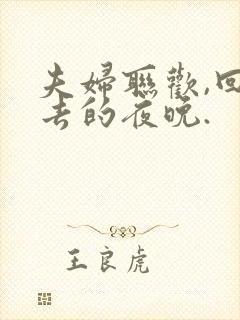 夫婦聯歡,回
去的夜晚.
王良虎